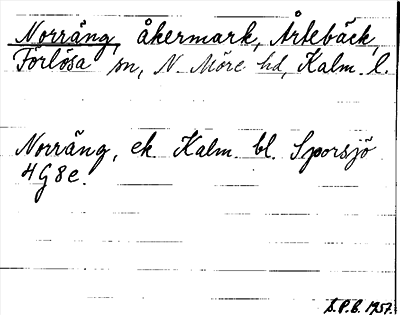 Norräng, åkermark, Årtebäck,
Förlösa sn, N. Möre hd, Kalm. l.
Norräng, ek. Kalm. bl. Sporsjö
4G8e.
S.P.B. 1957.